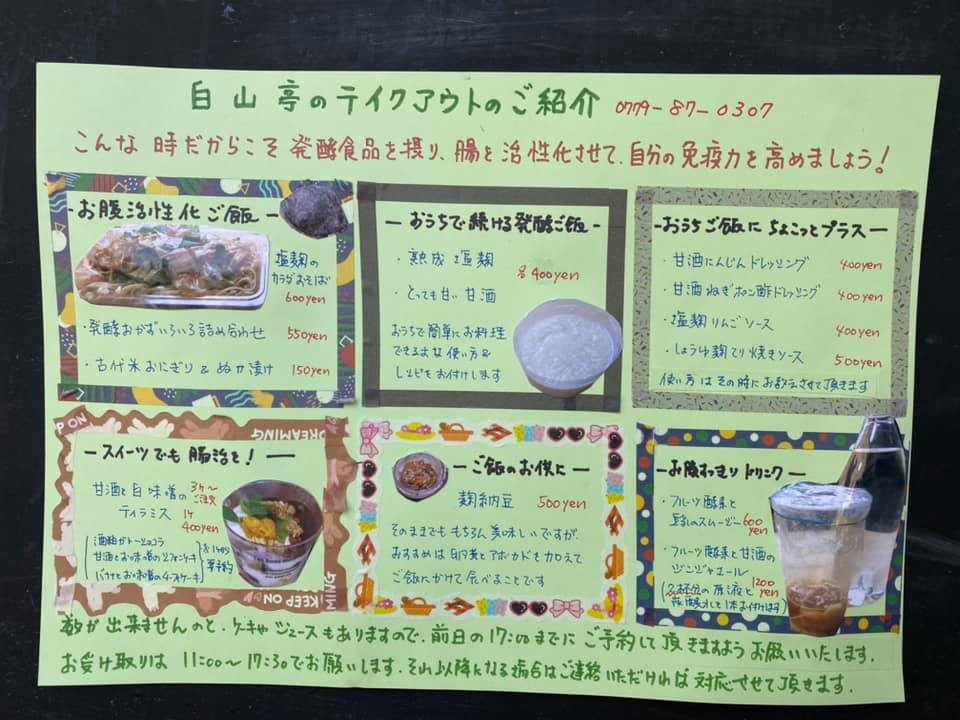 白山亭のテイクアウトのご紹介 0779-87-0307
こんな時だからこそ発酵食品を摂り、腸を活性化させて、自分の免疫力を高めましょう!
-お腹活性化ご飯-
塩麹の
カラダおそば
600yen
・発酵おかずいろいろ詰め合わせ 550yen
・古代米おにぎり&ぬか漬け 150yen
-おうちで続ける発酵ご飯-
・熟成塩麹
各400yen
・とっても甘い甘酒
おうちで簡単にお料理
できる様な使い方&
レシピをお付けします
-おうちご飯にちょこっとプラス-
・甘酒にんじんドレッシング 400yen
・甘酒ねぎポン酢ドレッシング 400yen
・塩麹りんごソース 400yen
・しょうゆ麹てり焼きソース 500yen
使い方はその時にお教えさせて頂きます
-スイーツでも腸活を!-
甘酒と白味噌の 3ケ〜ご注文
ティラミス 1ケ
400yen
酒粕ガトーショコラ
甘酒とお味噌のシフォンケーキ
バナナとお味噌のチーズケーキ
要予約
KEEP ON
DREAMING
-ご飯のお供に-
麹納豆 500yen
そのままでももちろん美味しいですが、
おすすめは卵黄とアボカドを加えて
ご飯にかけて食べることです
-お腹すっきりドリンク-
・フルーツ酵素と
豆乳のスムージー 600yen
・フルーツ酵素と甘酒の
ジンジャエール 1200yen
(2杯分の原液と
炭酸水1本お付けします)
数が出来ませんのと、ケーキやジュースもありますので、前日の17:00までにご予約して頂きますようお願いいたします。
お受け取りは 11:00〜17:30でお願いします。それ以降になる場合はご連絡いただければ対応させて頂きます。